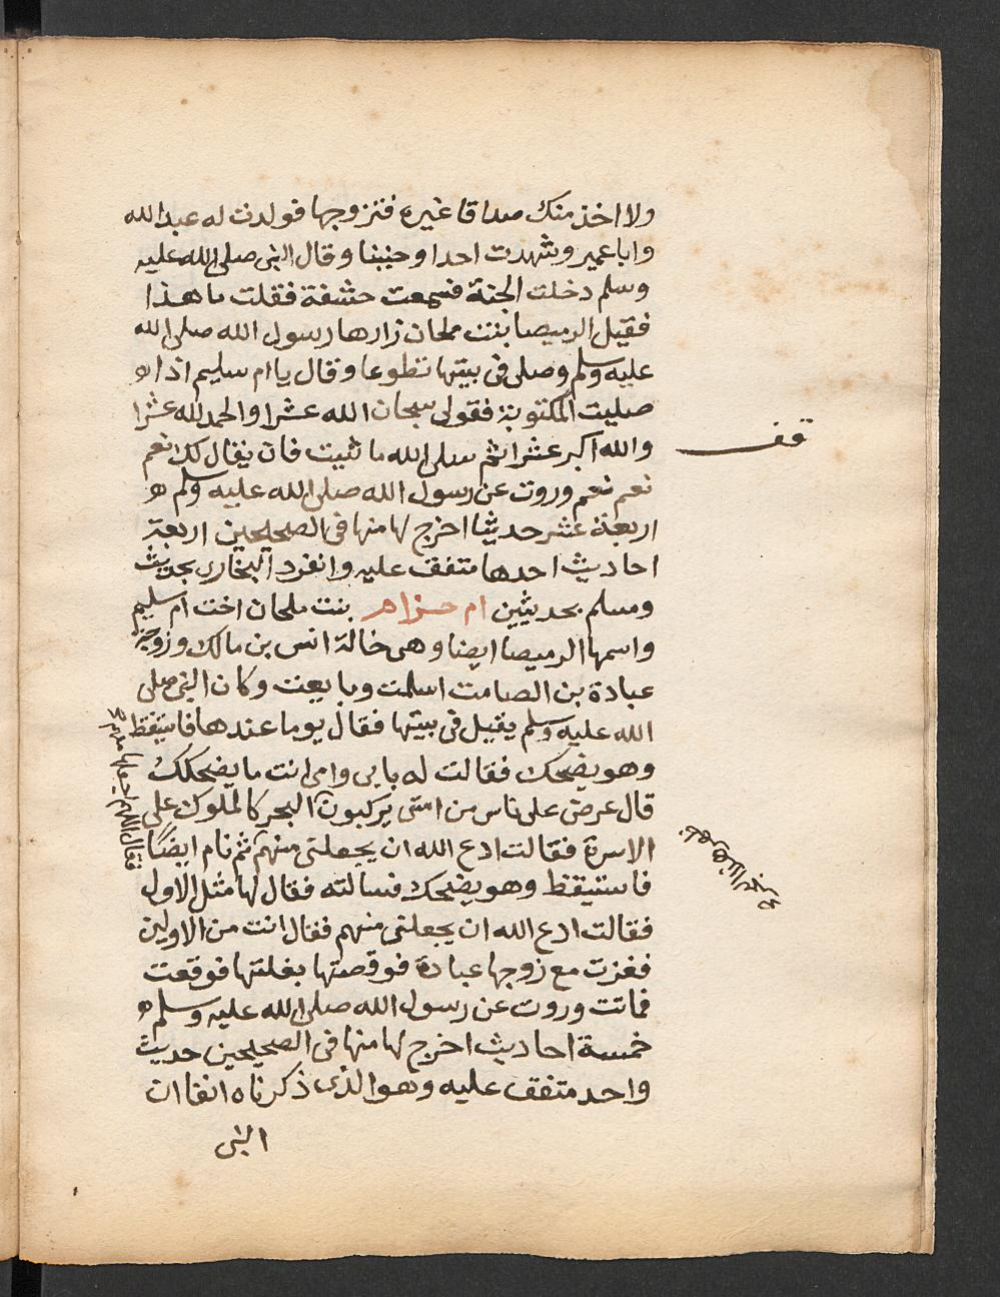 ولا اخذ منك صداقا غيره فتزوجها فولدت له عبد الله
وابا عمير وشهدت احدا وحنينا وقال النبى صلى الله عليه
وسلم دخلت الجنة فسمعت خشفة فقلت ما هذا
فقيل الرميصا بنت ملحان زارها رسول الله صلى الله
عليه وسلم وصلى فى بيتها تطوعا وقال يا ام سليم اذا
صليت المكتوبة فقولى سبحان الله عشرا والحمد لله عشرا
والله اكبر عشرا ثم سلى الله ما شيت فان يقال لك نعم
قف
نعم نعم وروت عن رسول الله صلى الله عليه وسلم
اربعة عشر حديثا اخرج لها منها فى الصحيحين اربعة
احاديث احدها متفق عليه وانفرد البخارى بحديث
ومسلم بحديثين ام حزام بنت ملحان اخت ام سليم
واسمها الرميصا ايضا وهى خالة انس بن مالك وزوجة
عبادة بن الصامت اسلمت وبايعت وكان النبى صلى
الله عليه وسلم يقيل فى بيتها فقال يوما عندها فاستيقظ
وهو يضحك فقالت له بابى وامى انت ما يضحكك
قال عرض على ناس من امتى يركبون البحر كالملوك على
الاسرة فقالت ادع الله ان يجعلنى منهم ثم نام ايضًا
فقال اللهم اجعلها منهم
فاستيقظ وهو يضحك فسالته فقال لها مثل الاول
فقالت ادع الله ان يجعلنى منهم فقال انت من الاولين
فغزت مع زوجها عبادة فوقصتها بغلتها فوقعت
فماتت وروت عن رسول الله صلى الله عليه وسلم
خمسة احاديث اخرج لها منها فى الصحيحين حديث
واحد متفق عليه وهو الذى ذكرناه انفا ان
النبى